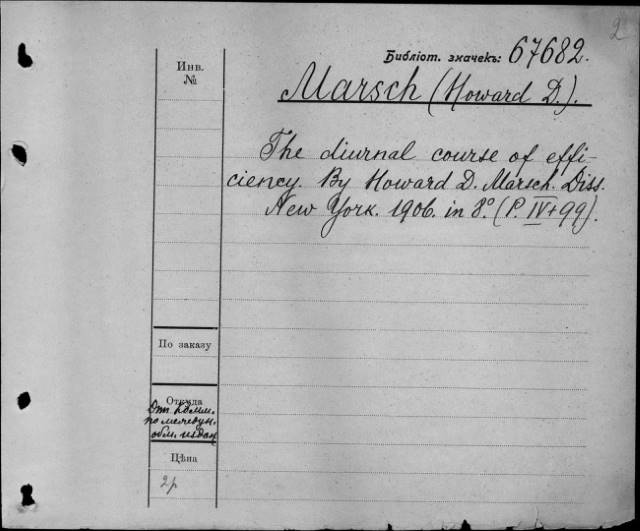 2
Библіот. значекъ: 67682.
Инв.
№
Marsch (Howard D.).
The diurnal course of effi-
ciency. By Howard D. Marsch. Diss.
New York. 1906. in 8.° (P. IV+99).
По заказу
Откуда
Отъ Комм.
по междун.
обм. издан.
Цѣна
2 р